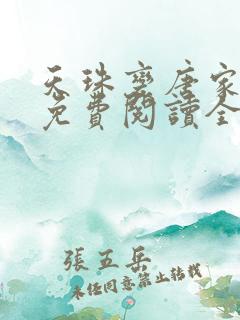 天珠变唐家
免費閱讀全
張五岳
未經同意禁止轉載